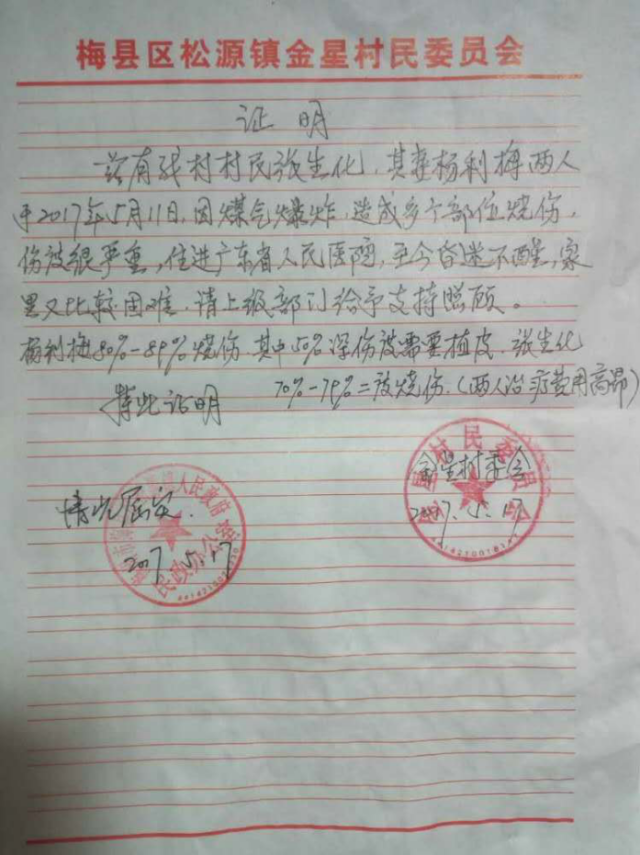 梅县区松源镇金星村民委员会
证明
兹有我村村民张生化，其妻杨利梅两人
于2017年5月11日，因煤气爆炸，造成多个部位烧伤，
伤被很严重，住进广东省人民医院，至今昏迷不醒，家
里又比较困难，请上级部门给予支持照顾。
杨利梅80%-89%烧伤，其中50%深伤被需要植皮，张生化
70%-79%二被烧伤。（两人治疗费用高昂）
特此证明
金星村委会
2017.5.17
情况属实.
2017.5.17
人民政府
民政办公
村民委员会